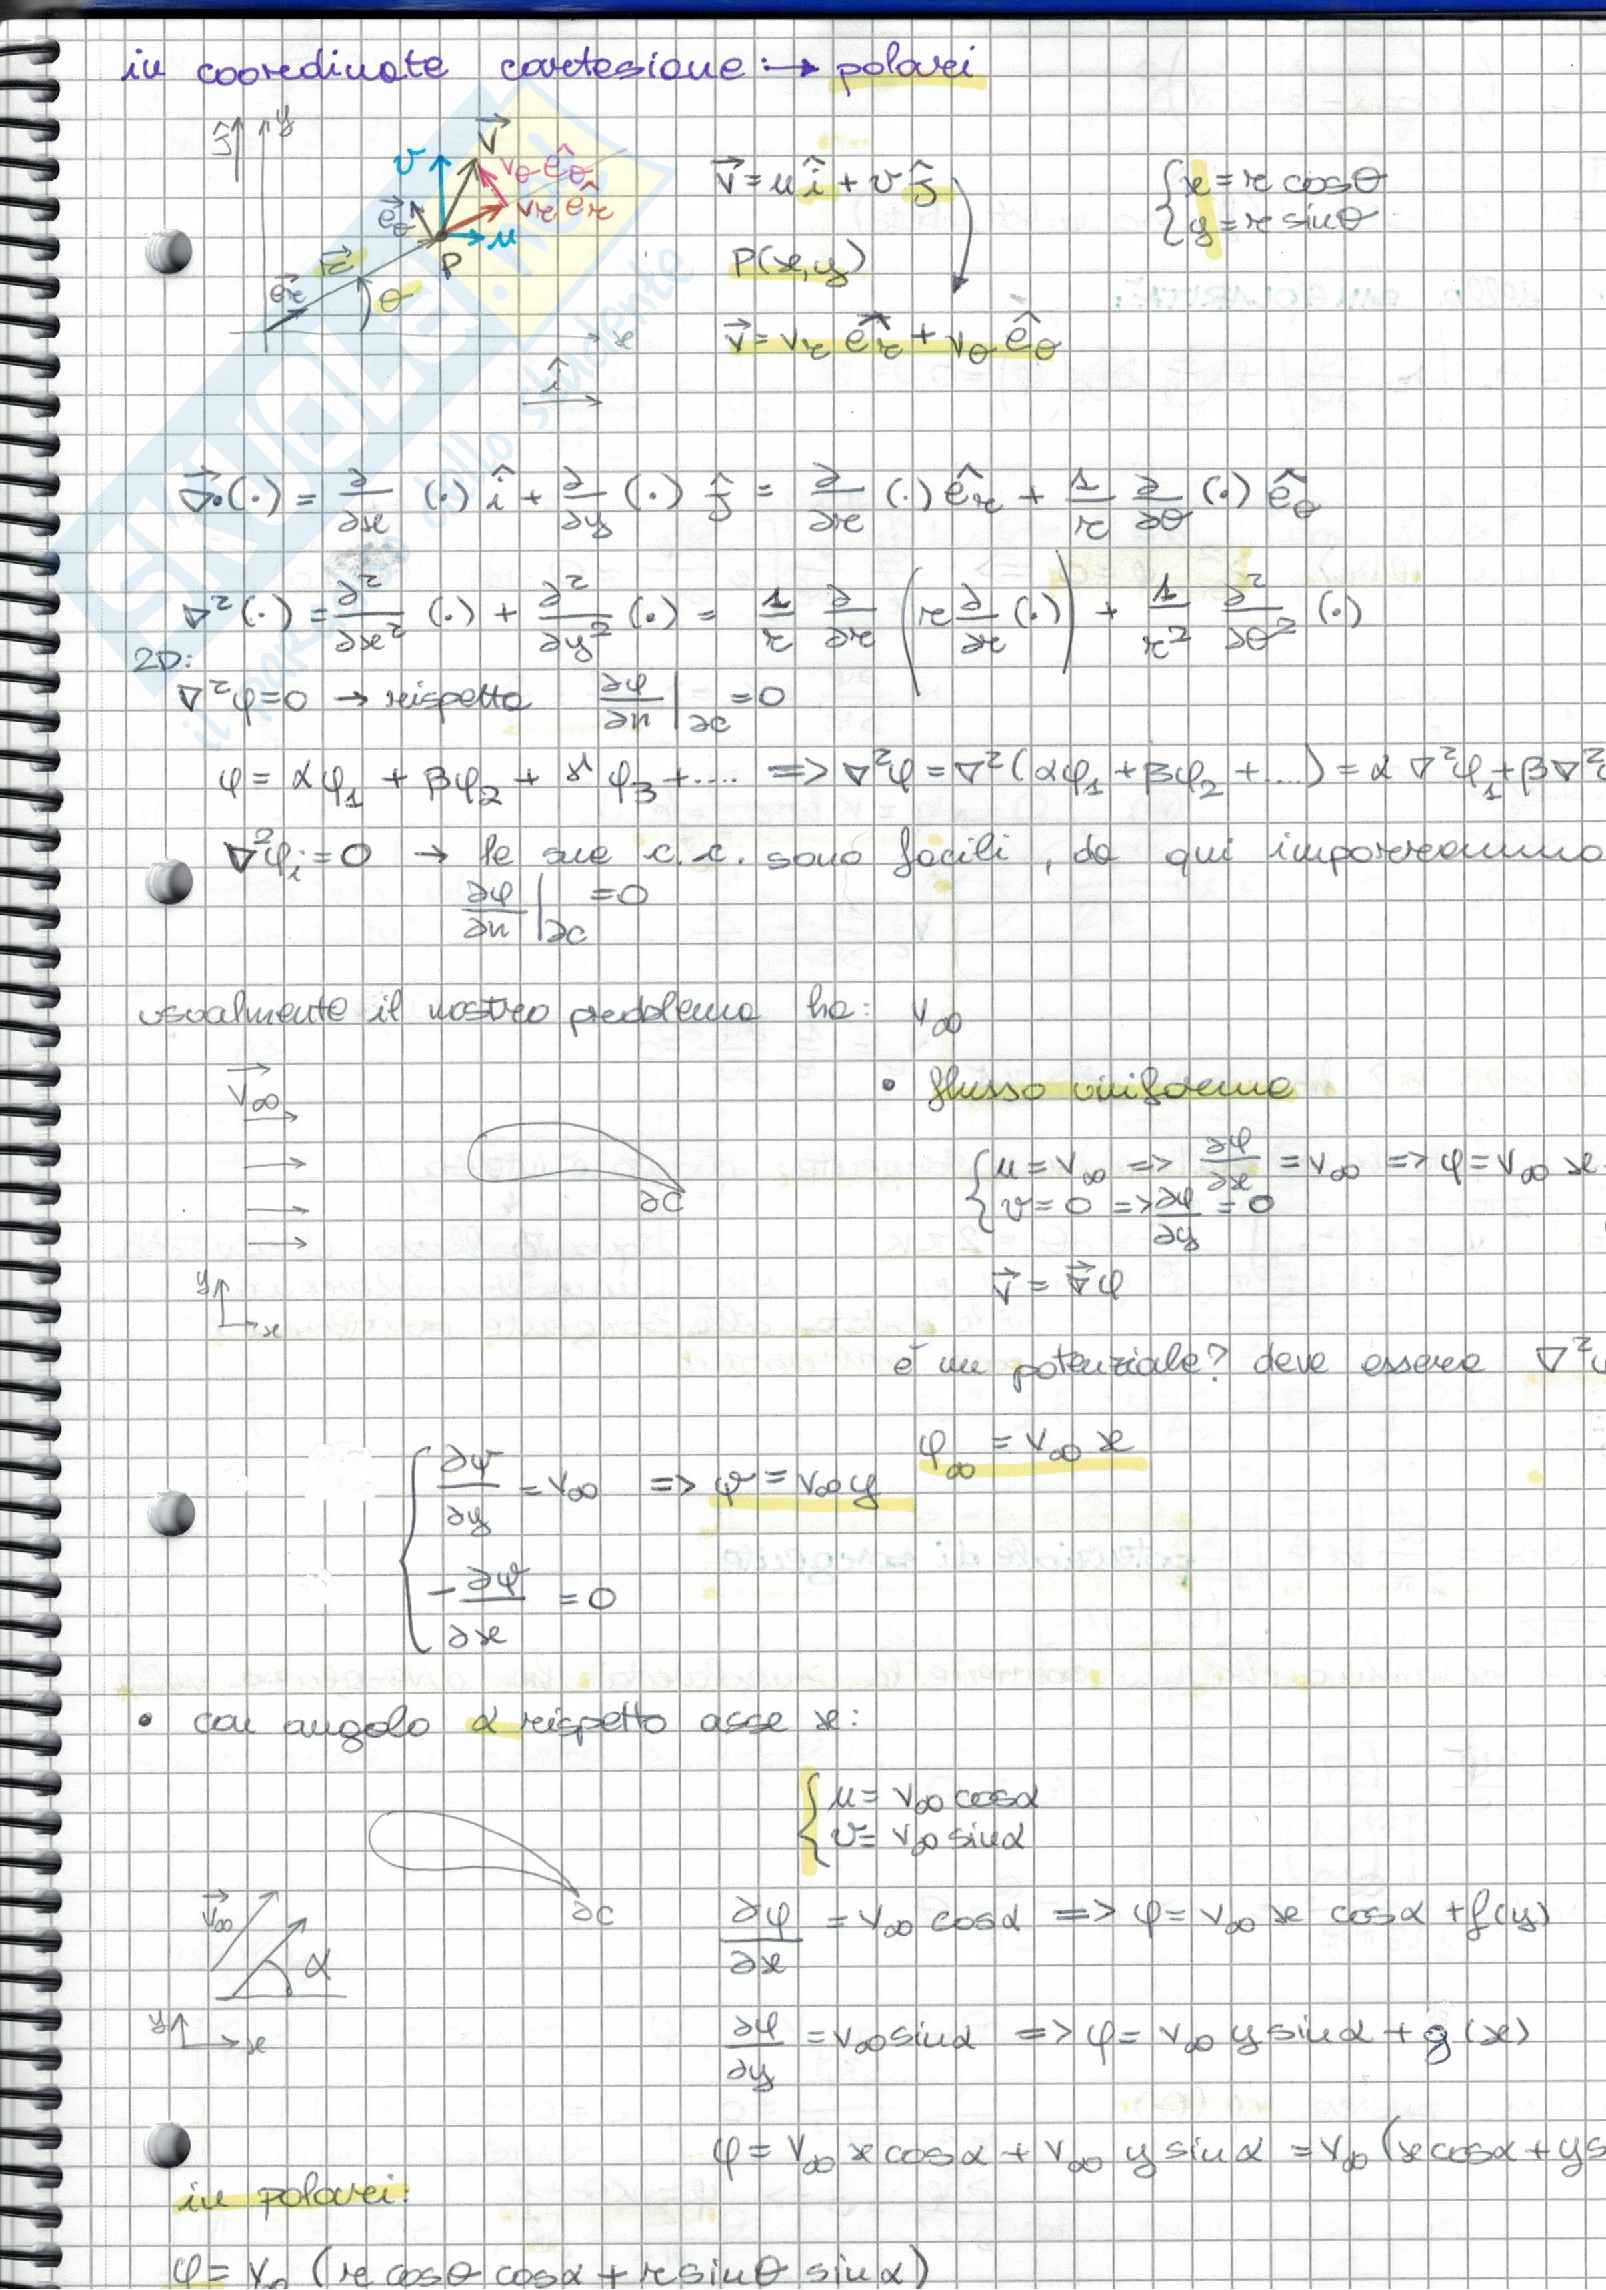 in coordinate cartesiane: → polari
ĵ y
v V⃗ vθ êθ
e⃗θ vr êr
u
P
r⃗
e⃗r θ
x
î
V⃗ = u î + v ĵ
{ x = r cosθ
y = r sinθ
P(x,y)
V⃗ = vr êr + vθ êθ
∇⃗·(·) = ∂/∂x (·) î + ∂/∂y (·) ĵ = ∂/∂r (·) êr + 1/r ∂/∂θ (·) êθ
∇²(·) = ∂²/∂x² (·) + ∂²/∂y² (·) = 1/r ∂/∂r (r ∂/∂r (·)) + 1/r² ∂²/∂θ² (·)
2D:
∇²φ=0 → rispetto ∂φ/∂n |∂C = 0
φ = αφ1 + βφ2 + γφ3 + .... => ∇²φ = ∇²(αφ1 + βφ2 + ...) = α ∇²φ1 + β∇²
∇²φi = 0 → le sue c.c. sono facili, da qui imporremo
∂φ/∂n |∂C = 0
usualmente il nostro problema ha: V∞
V⃗∞
∂C
y
x
• flusso uniforme
{ u = V∞ => ∂φ/∂x = V∞ => φ = V∞ x
v = 0 => ∂φ/∂y = 0
V⃗ = ∇⃗φ
è un potenziale? deve essere ∇²
φ∞ = V∞ x
{ ∂ψ/∂y = V∞ => ψ = V∞ y
-∂ψ/∂x = 0
• con angolo α rispetto asse x:
{ u = V∞ cosα
v = V∞ sinα
∂C
V⃗∞
α
y
x
∂φ/∂x = V∞ cosα => φ = V∞ x cosα + f(y)
∂φ/∂y = V∞ sinα => φ = V∞ y sinα + g(x)
φ = V∞ x cosα + V∞ y sinα = V∞ (x cosα + y s
in polari:
φ = V∞ (r cosθ cosα + r sinθ sinα)
SKUOLA.net
il paradiso dello studente